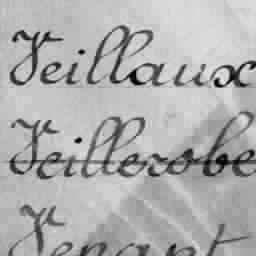 Veillaux
Veillerobe
Venant